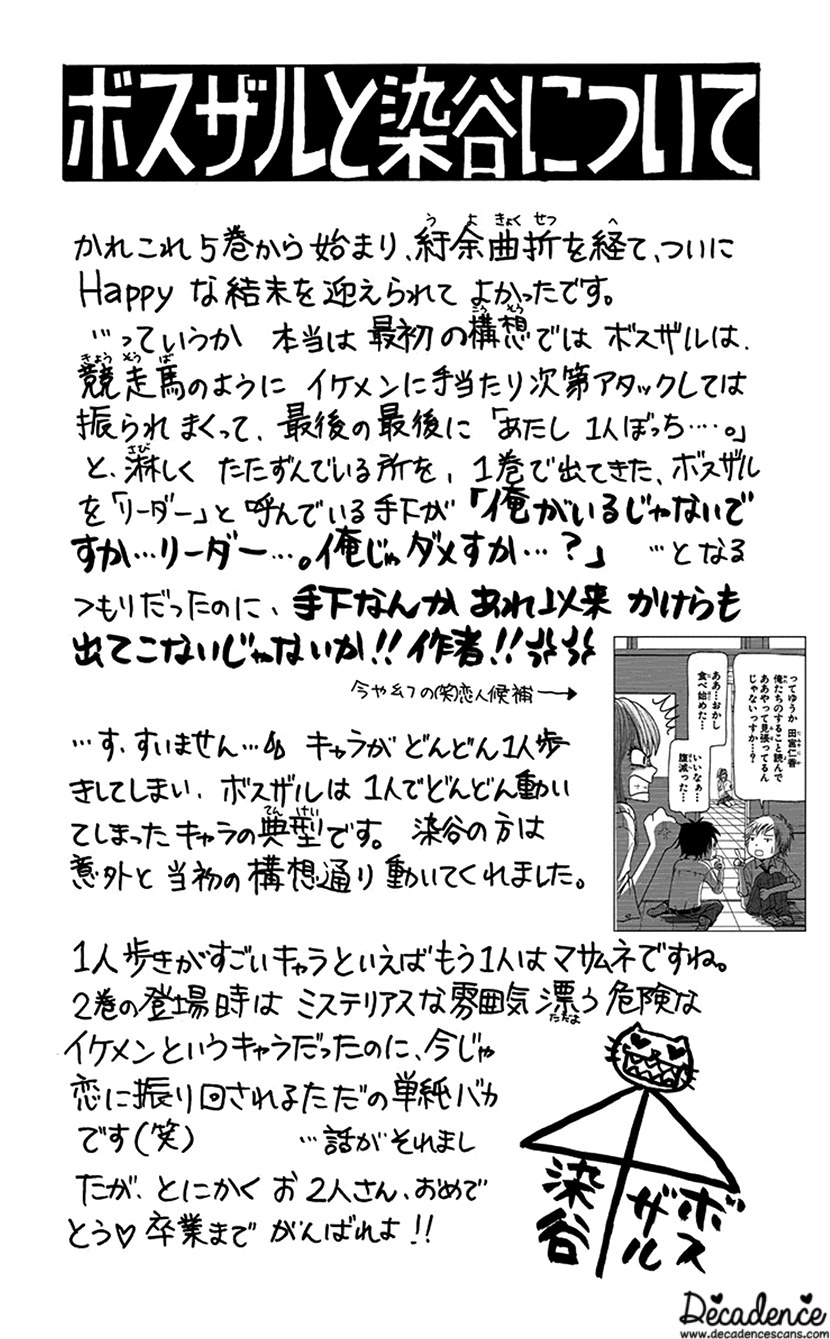 ボスザルと染谷について
かれこれ5巻から始まり、紆余曲折を経て、ついに
Happyな結末を迎えられてよかったです。
…っていうか 本当は最初の構想ではボスザルは、
競走馬のようにイケメンに手当たり次第アタックしては
振られまくって、最後の最後に「あたし1人ぼっち…。」
と、淋しくたたずんでいる所を、1巻で出てきた、ボスザル
を「リーダー」と呼んでいる手下が「俺がいるじゃないで
すか…リーダー…。俺じゃダメすか…?」 …となる
つもりだったのに、手下なんかあれ以来かけらも
出てこないじゃないか!!作者!!
今や幻の(笑)恋人候補→
ってゆうか 田宮仁香
俺たちのすること読んで
ああやって見張ってるん
じゃないっすか…?
ああ…おかし
食べ始めた…
いいなぁ…
腹減った…
…す、すいません… キャラがどんどん1人歩
きしてしまい、ボスザルは1人でどんどん動い
てしまったキャラの典型です。 染谷の方は
意外と当初の構想通り動いてくれました。
1人歩きがすごいキャラといえばもう1人はマサムネですね。
2巻の登場時はミステリアスな雰囲気漂う危険な
イケメンというキャラだったのに、今じゃ
恋に振り回されるただの単純バカ
です(笑) …話がそれまし
たが、とにかくお2人さん、おめで
とう♡卒業までがんばれよ!!
染谷
ボスザル
Decadence
www.decadencescans.com